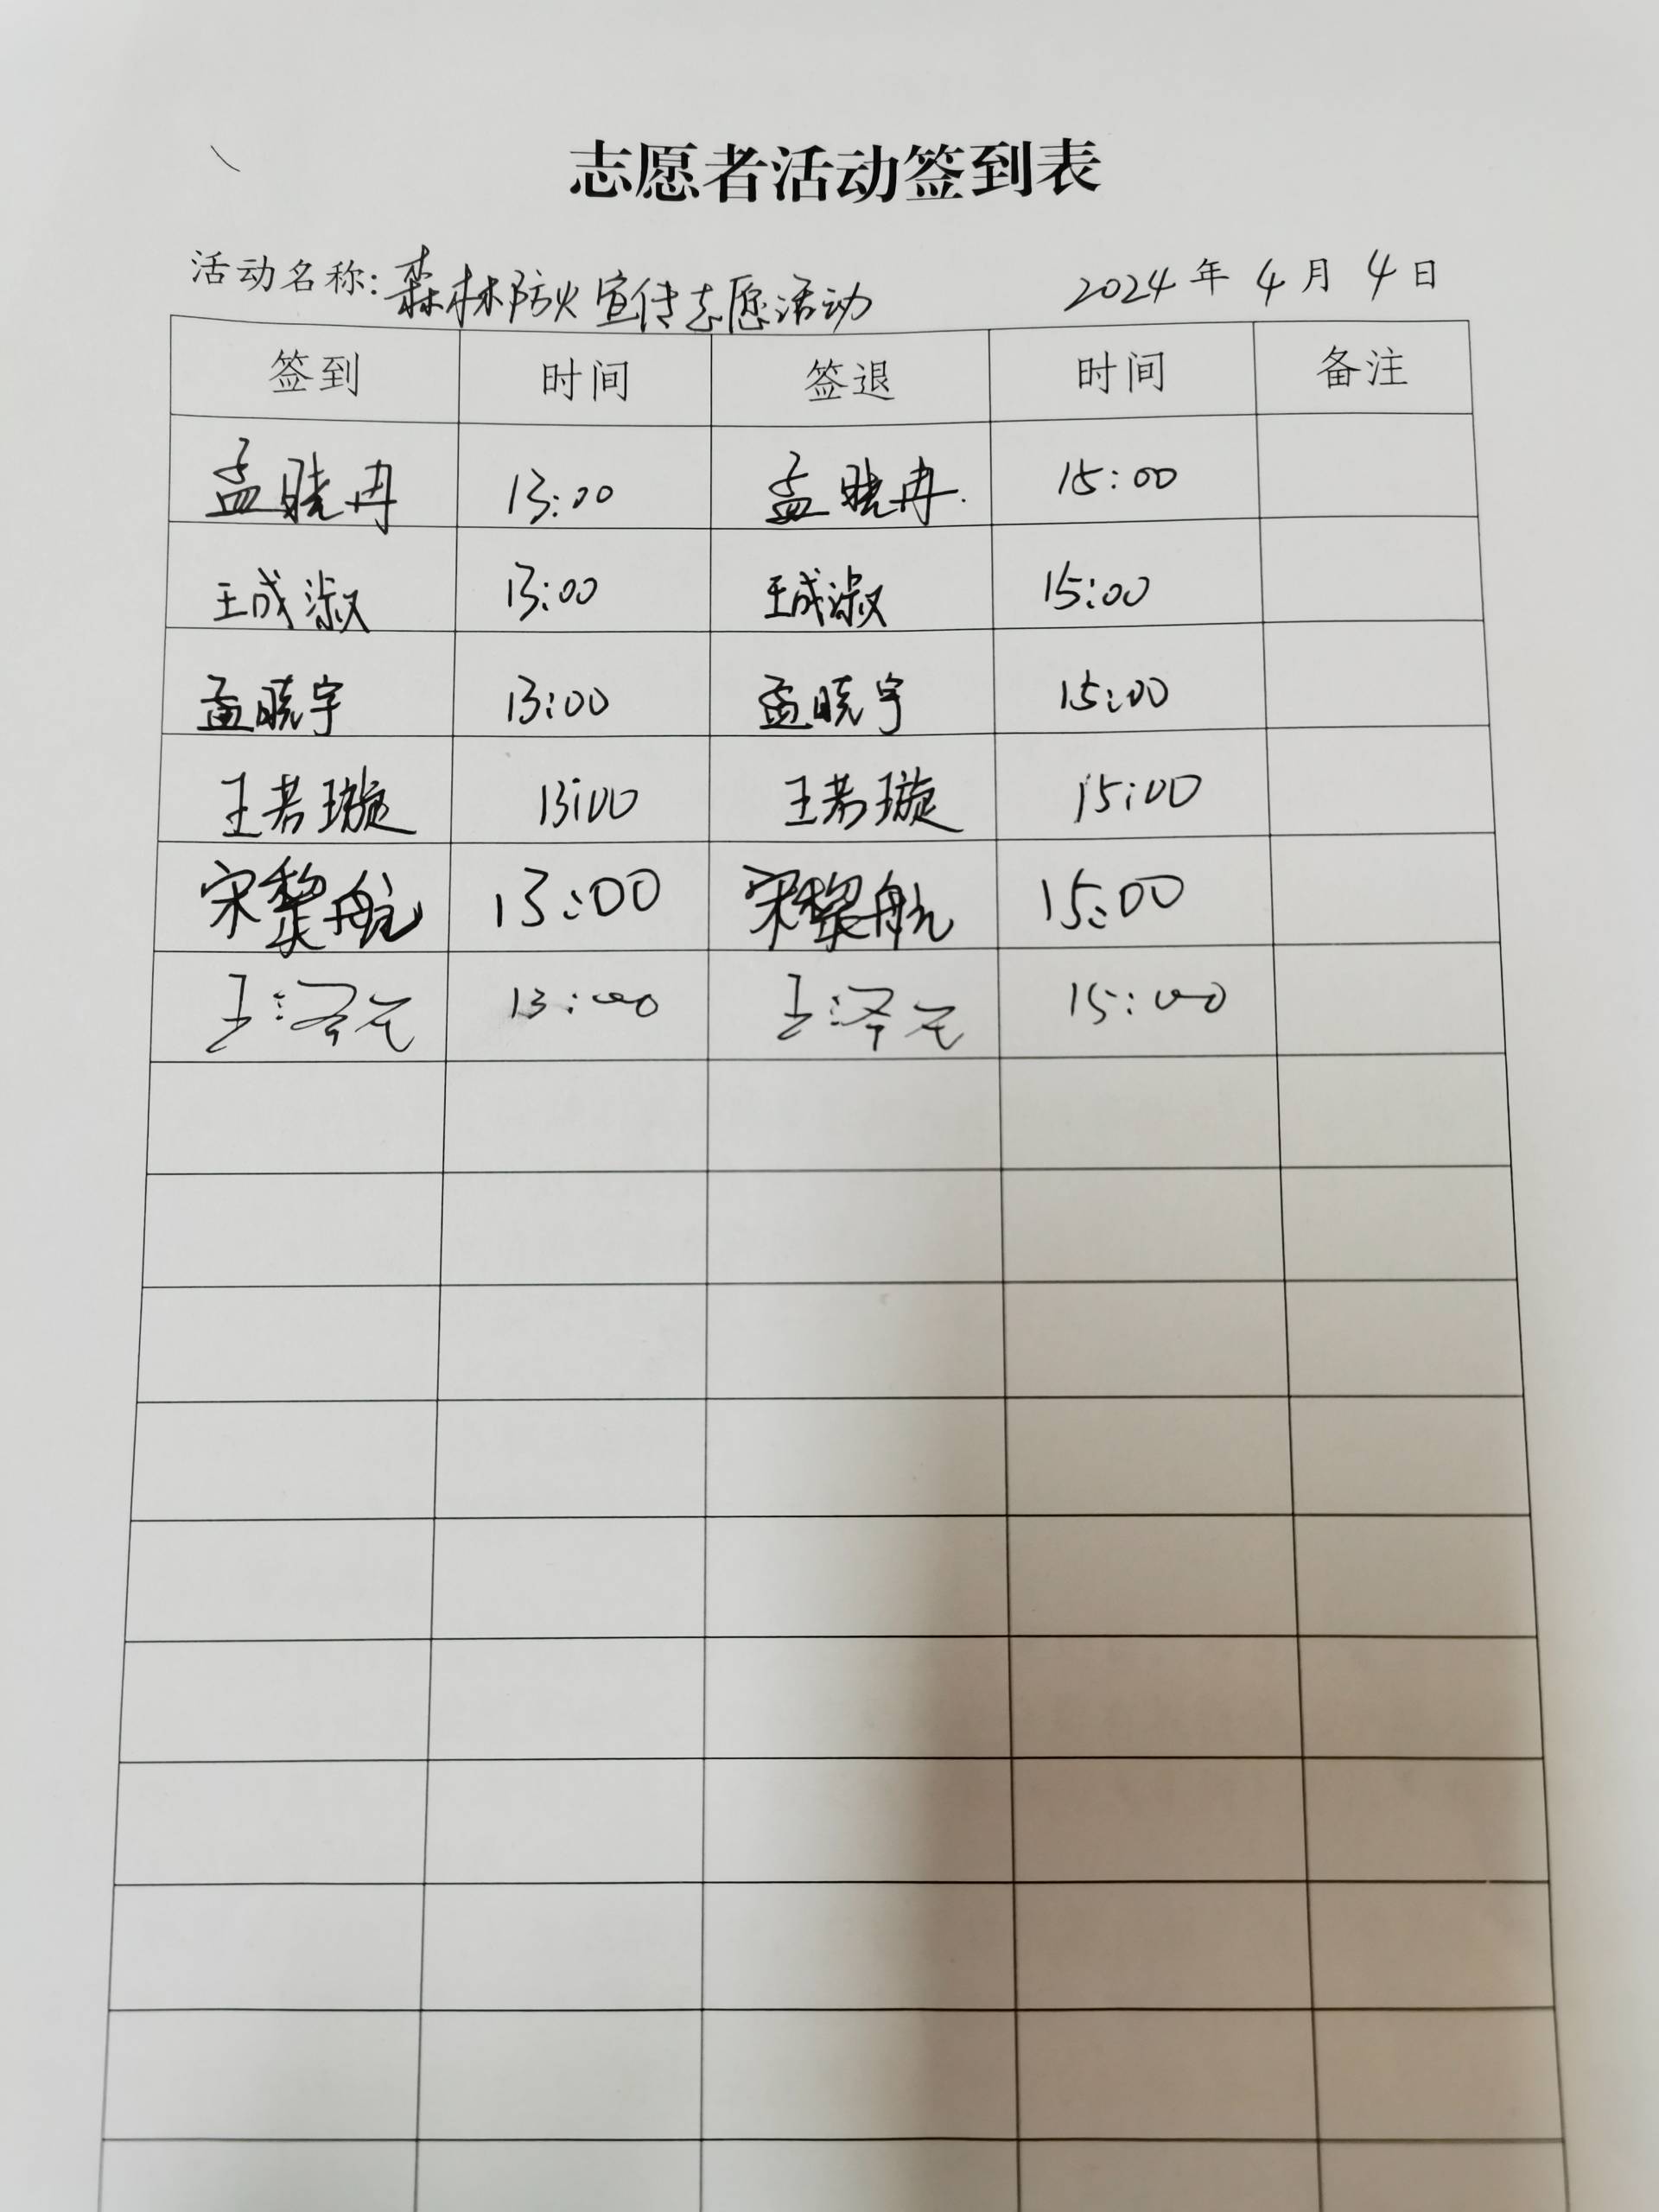 志愿者活动签到表
活动名称:森林防火宣传志愿活动 2024年4月4日
签到 时间 签退 时间 备注
孟晓冉 13:00 孟晓冉 15:00
王成淑 13:00 王成淑 15:00
孟晓宇 13:00 孟晓宇 15:00
王若璇 13:00 王若璇 15:00
宋黎航 13:00 宋黎航 15:00
王泽元 13:00 王泽元 15:00